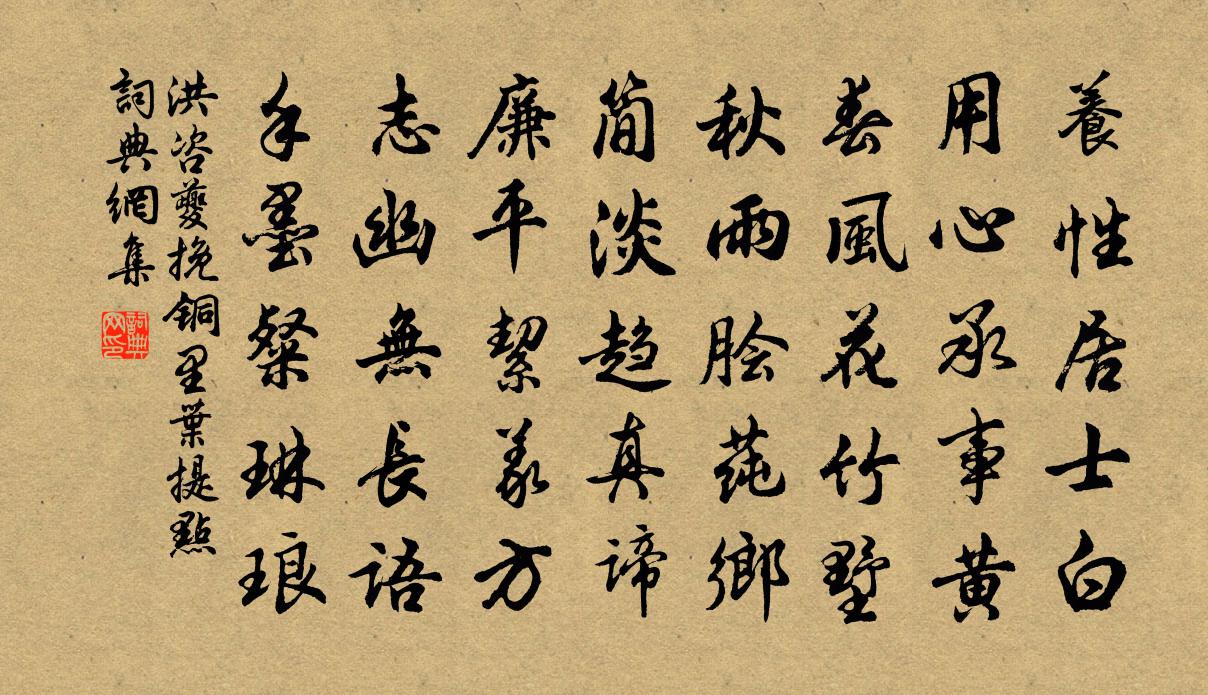 養性居士白
用心承事黃
春風花竹墅
秋雨膾莼鄉
簡淡趋真諦
廉平絜義方
志幽無長語
手墨粲琳琅
洪咨夔挽銅里葉提點
詞典網集
詞典網印